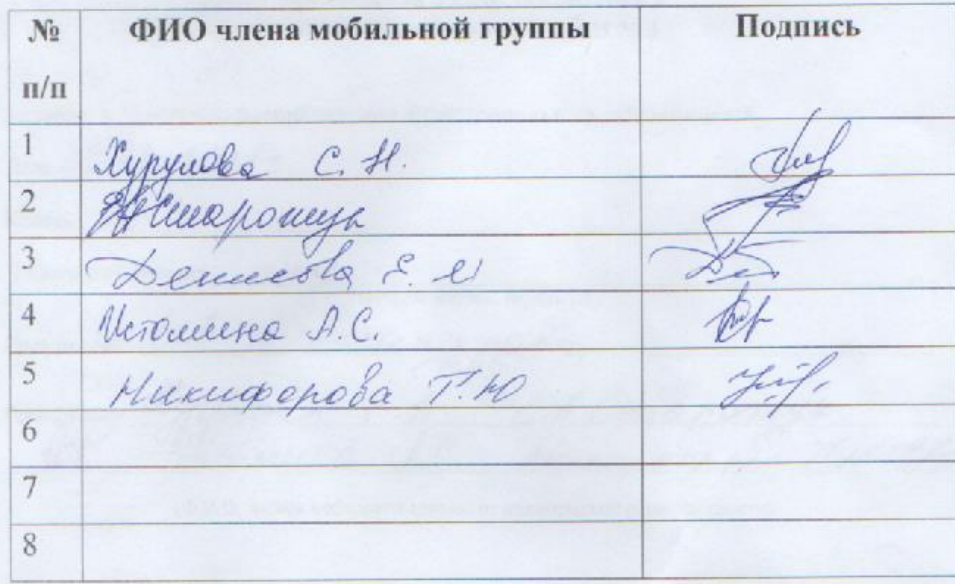 № п/п ФИО члена мобильной группы Подпись
1 Хурулова С. Н.
2
3 Денисова Е. И
4 Истомина А.С.
5 Никифорова Т.Ю
6
7
8